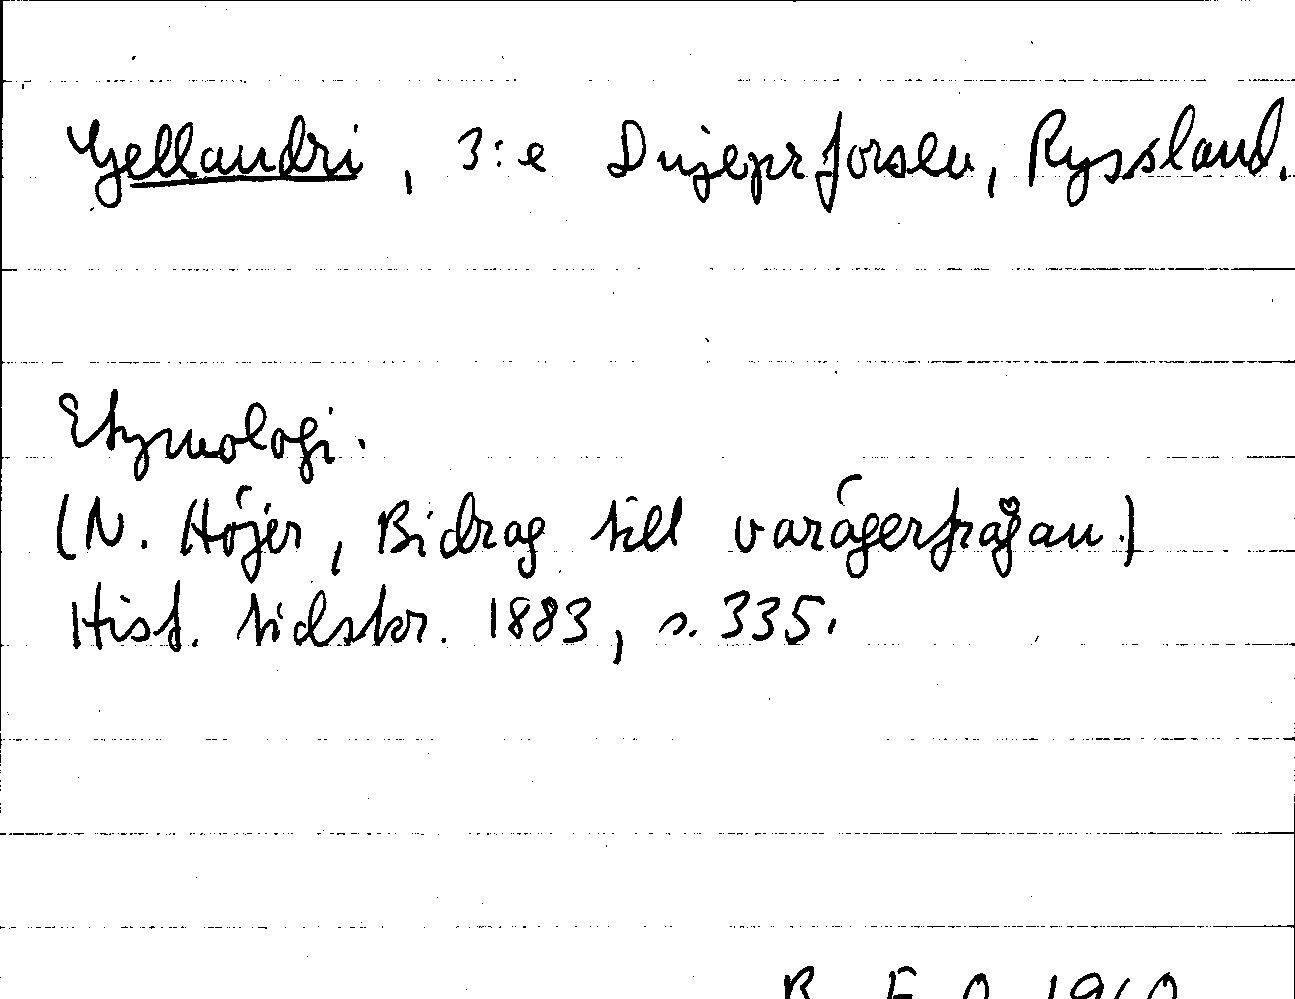 Gellandri, 3:e Dnjeprforsen, Ryssland.
Etymologi.
(N. Höjer, Bidrag till varägerfrågan.)
Hist. tidskr. 1883, s. 335.